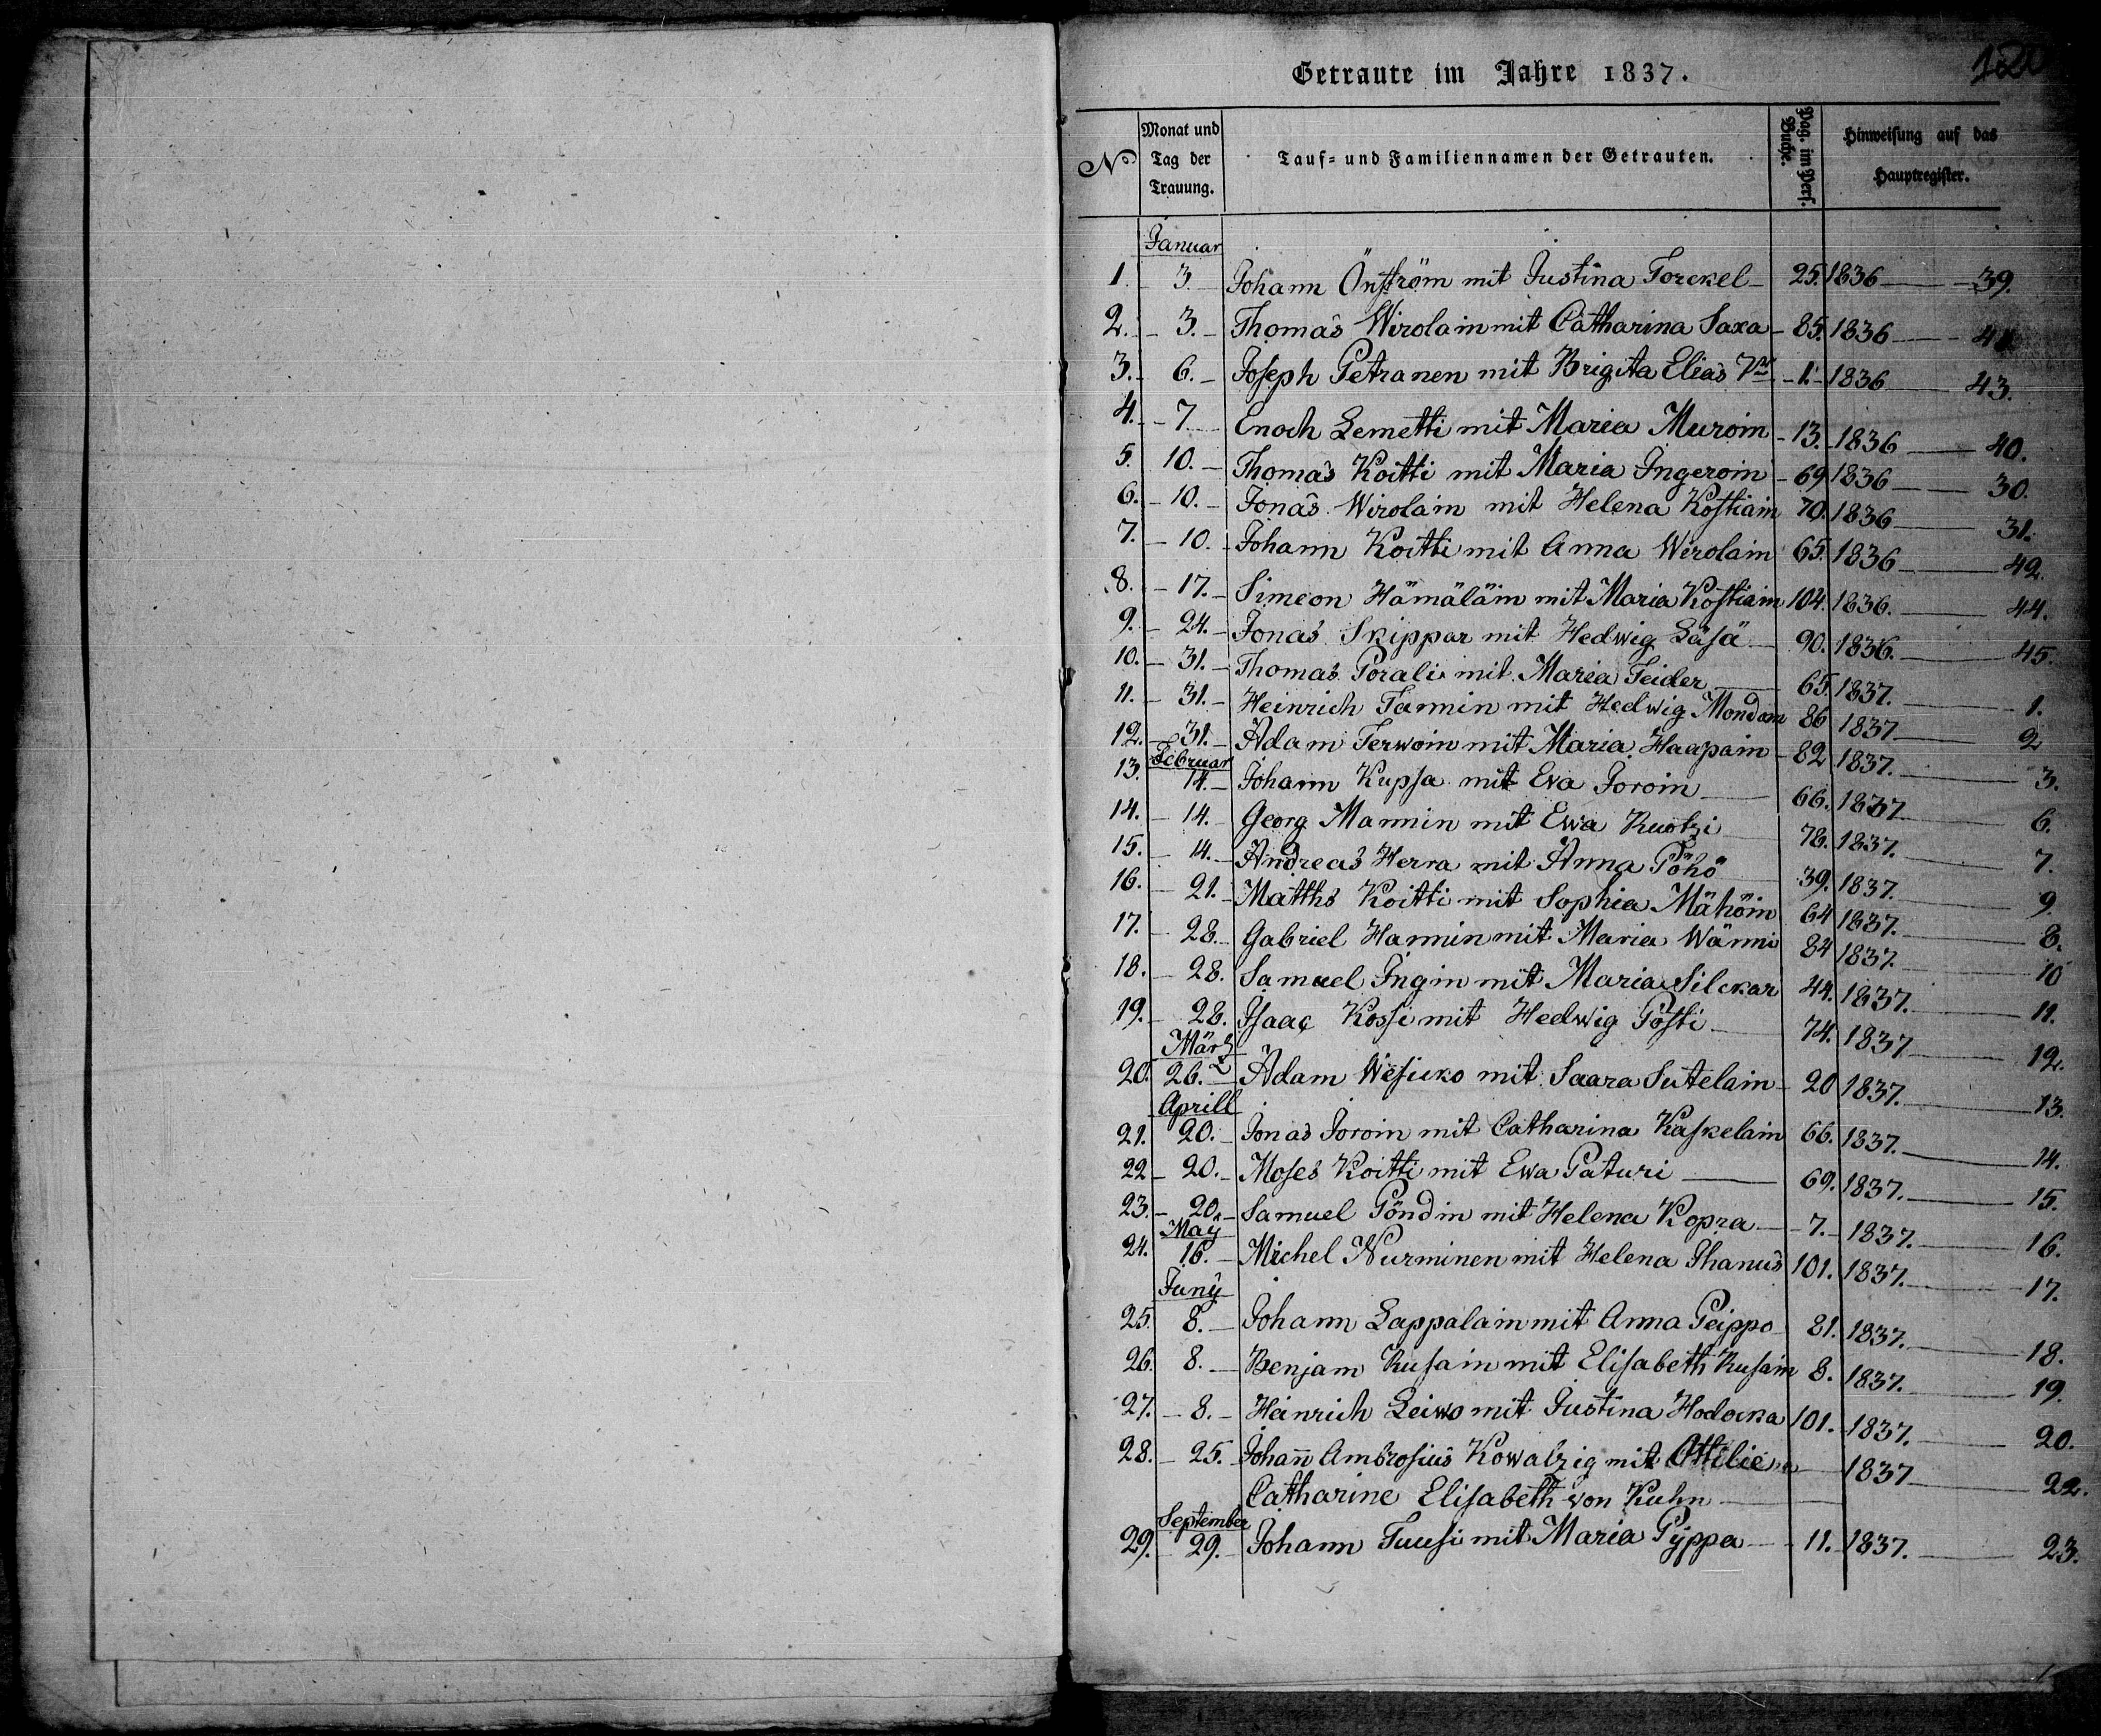 120
Getraute im Jahre 1837.
No Monat und Tag der Trauung. Tauf- und Familiennamen der Getrauten. Pag. im Pers. Buche. Hinweisung auf das Hauptregister.
Januar
1. 3. Johann Önström mit Justina Torckel 25. 1836 39.
2. 3. Thomas Wirolain mit Catharina Saxa 85. 1836 41.
3. 6. Joseph Petranen mit Brigita Elias 1. 1836 43.
4. 7 Enoch Lemetti mit Maria Muroin 13. 1836 40.
5. 10. Thomas Koitti mit Maria Ingeroin 69 1836 30.
6. 10. Jonas Wirolain mit Helena Kostiain 70. 1836 31.
7. 10. Johann Koitti mit Anna Wirolain 65. 1836 42.
8. 17. Simeon Hämäläin mit Maria Kostiain 104. 1836. 44.
9. 24. Jonas Skippar mit Hedwig Läsä 90. 1836. 45.
10. 31. Thomas Porali mit Maria Teider 65. 1837. 1.
11. 31. Heinrich Tannin mit Hedwig 86 1837 2
12. 31. Adam Terwoin mit Maria Haapain 82 1837. 3.
Februar
13. 14. Johann Kupsa mit Eva Toroin 66. 1837 6.
14. 14. Georg Mannin mit Ewa Ruotzi 76. 1837. 7.
15. 14. Andreas Herra mit Anna Pöhö 39. 1837. 9.
16. 21. Matths Koitti mit Sophia Mähöin 64 1837. 8.
17. 28. Gabriel Hannin mit Maria Wänni 84 1837. 10
18. 28. Samuel Ingin mit Maria Silckar 44. 1837. 11.
19. 28. Isaac Kossi mit Hedwig Pösti 74. 1837 12.
März
20. 26. Adam Wesicko mit Saara Sutelain 20 1837. 13.
Aprill
21. 20. Jonas Toroin mit Catharina Kaskelain 66. 1837. 14.
22 20. Moses Koitti mit Ewa Paturi 69. 1837. 15.
23. 20. Samuel Pöndin mit Helena Kopra 7. 1837. 16.
May
24. 16. Michel Nurminen mit Helena Ihanus 101. 1837. 17.
Juny
25. 8. Johann Lappalain mit Anna Peippo 81. 1837. 18.
26. 8. Benjam Rusain mit Elisabeth Rusain 8. 1837. 19.
27. 8. Heinrich Leiwo mit Justina Hodocka 101. 1837. 20.
28. 25. Johann Ambrosius Kowalzig mit Ottilie 1837 22.
Catharine Elisabeth von Kuhn
September
29. 29. Johann Tuusi mit Maria Pÿppa 11. 1837. 23.